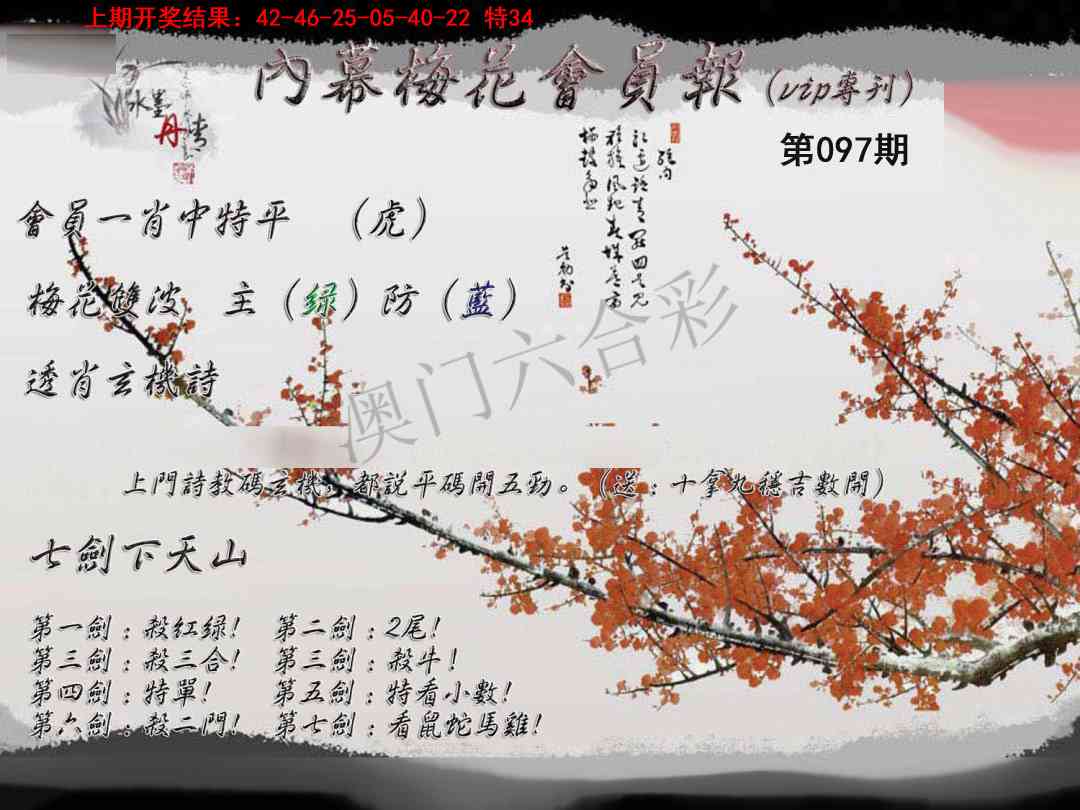 上期开奖结果：42-46-25-05-40-22 特34
內幕梅花會員報（vip專刊）
水墨
丹青
第097期
會員一肖中特平 （虎）
梅花雙波 主（绿）防（藍）
透肖玄機詩
澳门六合彩
上門詩教碼玄機，都説平碼開五勁。（送：十拿九穩吉數開）
七劍下天山
第一劍：殺紅绿！ 第二劍：2尾！
第三劍：殺三合！ 第三劍：殺牛！
第四劍：特單！ 第五劍：特看小數！
第六劍：殺二門！ 第七劍：看鼠蛇馬雞！